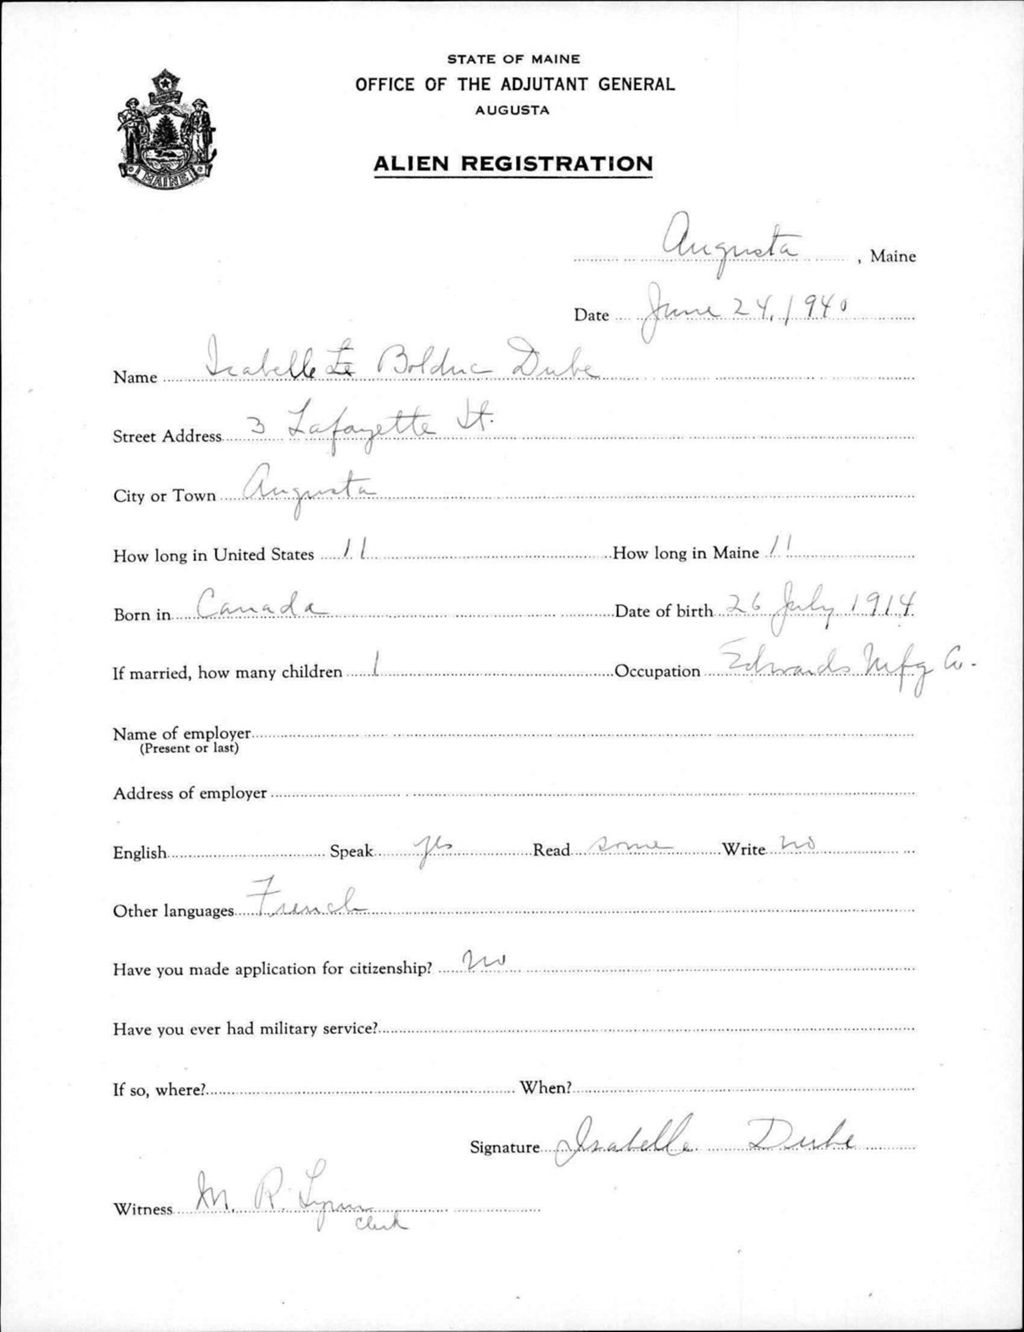 STATE OF MAINE
OFFICE OF THE ADJUTANT GENERAL
AUGUSTA
ALIEN REGISTRATION
MAINE
Augusta, Maine
Date June 24, 1940
Name Isabelle Le Bolduc Dube
Street Address 3 Lafayette St.
City or Town Augusta
How long in United States 11 How long in Maine 11
Born in Canada Date of birth 26 July 1914
If married, how many children 1 Occupation Edwards Mfg Co.
Name of employer
(Present or last)
Address of employer
English Speak yes Read some Write no
Other languages French
Have you made application for citizenship? no
Have you ever had military service?
If so, where? When?
Signature Isabelle Dube
Witness M. R. Lynn
Clerk